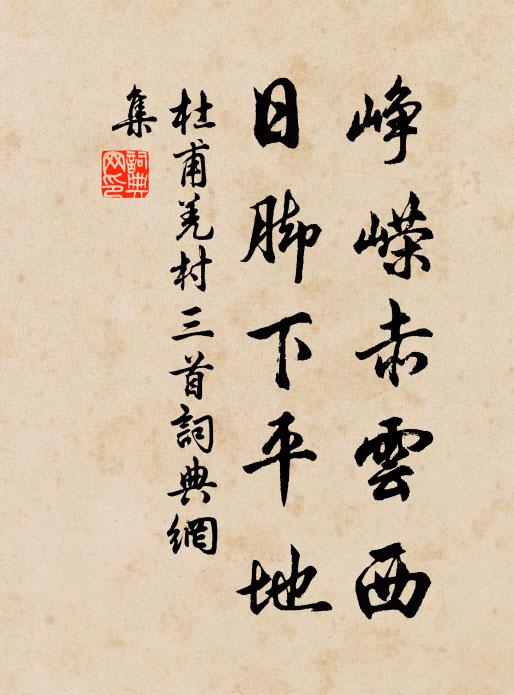 崢嶸赤雲西
日脚下平地
杜甫羌村三首詞典網
集
詞典
网印